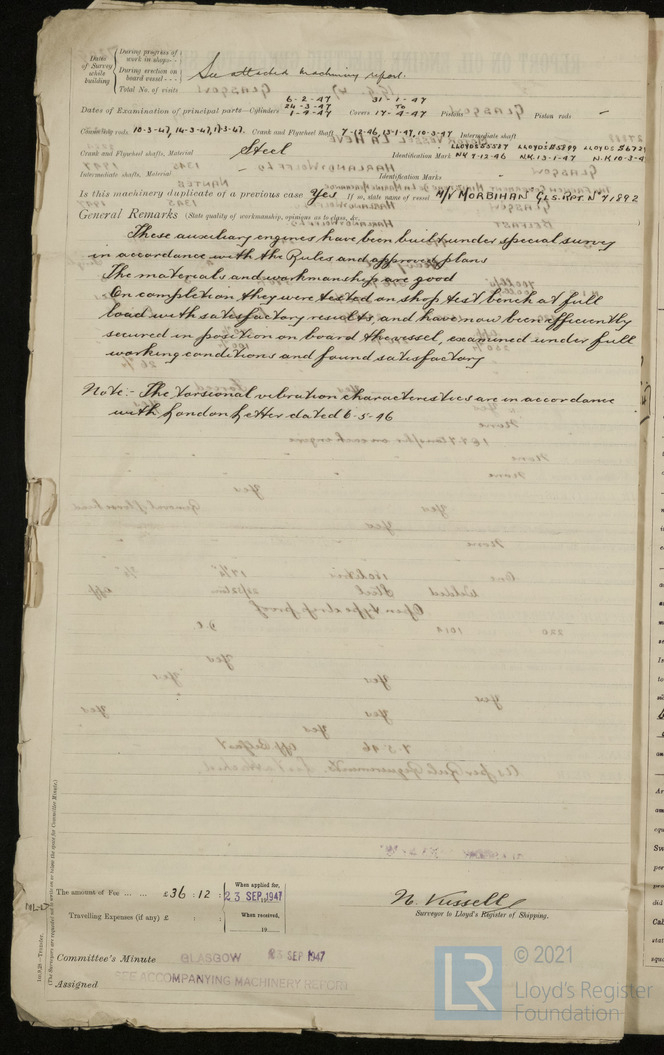 Dates of Survey while building
During progress of work in shops - -
During erection on board vessel - - -
Total No. of visits
See attached machinery report.
6-2-47 31-1-47
24-3-47 To
Dates of Examination of principal parts—Cylinders 1-4-47 Covers 17-4-47 Pistons Piston rods -
Connecting rods, 10-3-47, 14-3-47, 17-3-47. Crank and Flywheel shaft 7-12-46, 13-1-47, 10-3-47 Intermediate shaft
Crank and Flywheel shafts, Material Steel Identification Mark LLOYDS 55537 NK 7-12-46 LLOYDS 55899 N.K 13-1-47 LLOYDS 5672 N.K 10-3-4
Intermediate shafts, Material - Identification Marks -
Is this machinery duplicate of a previous case Yes If so, state name of vessel M/V MORBIHAN GLS. RPT. No 71892
General Remarks (State quality of workmanship, opinions as to class, &c.
These auxiliary engines have been built under special survey
in accordance with the Rules and approved plans
The materials and workmanship are good
On completion they were tested on shop test bench at full
load with satisfactory results, and have now been efficiently
secured in position on board the vessel, examined under full
working conditions and found satisfactory
Note:- The torsional vibration characteristics are in accordance
with London Letter dated 6-5-46
The amount of Fee ... ... £36 : 12 : When applied for, 23 SEP. 1947
Travelling Expenses (if any) £ : : When received, 19
N. Kussell
Surveyor to Lloyd's Register of Shipping.
Committee's Minute GLASGOW SEP 1947
Assigned SEE ACCOMPANYING MACHINERY REPORT
(The Surveyors are requested not to write on or below the space for Committee's Minute.)
© 2021
LR Lloyd's Register
Foundation